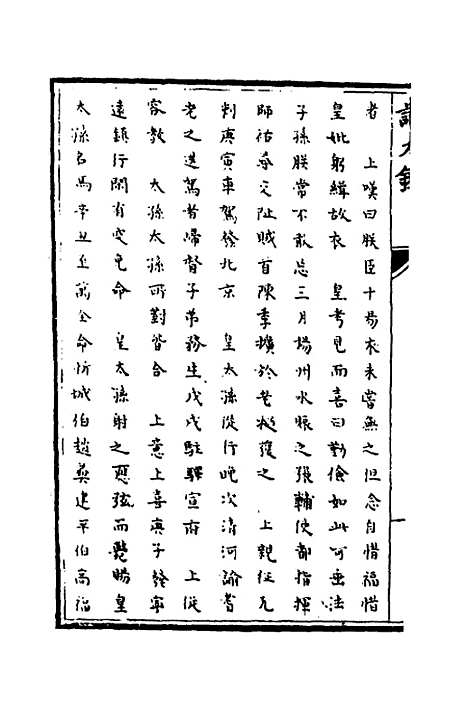 者　上嘆曰朕臣十易衣未嘗無之但念自惜福惜
皇妣躬緝故衣　皇考見而喜曰勤儉如此可垂法
子孫朕常不敢忘三月揚州水賑之張輔使都指揮
師祐等交阯賊首陳季擴於老撾獲之　上親征瓦
剌庚寅車駕發北京　皇太孫從行晚次清河諭耆
老之送駕者歸督子弟務生戊戌駐驛宣府　上從
容教　太孫太孫所對皆合　上意上喜庚子發寧
遠鎮行間有突兔命　皇太孫射之應弦而斃賜皇
太孫名馬辛丑至萬全命忻城伯趙彝建平伯高福